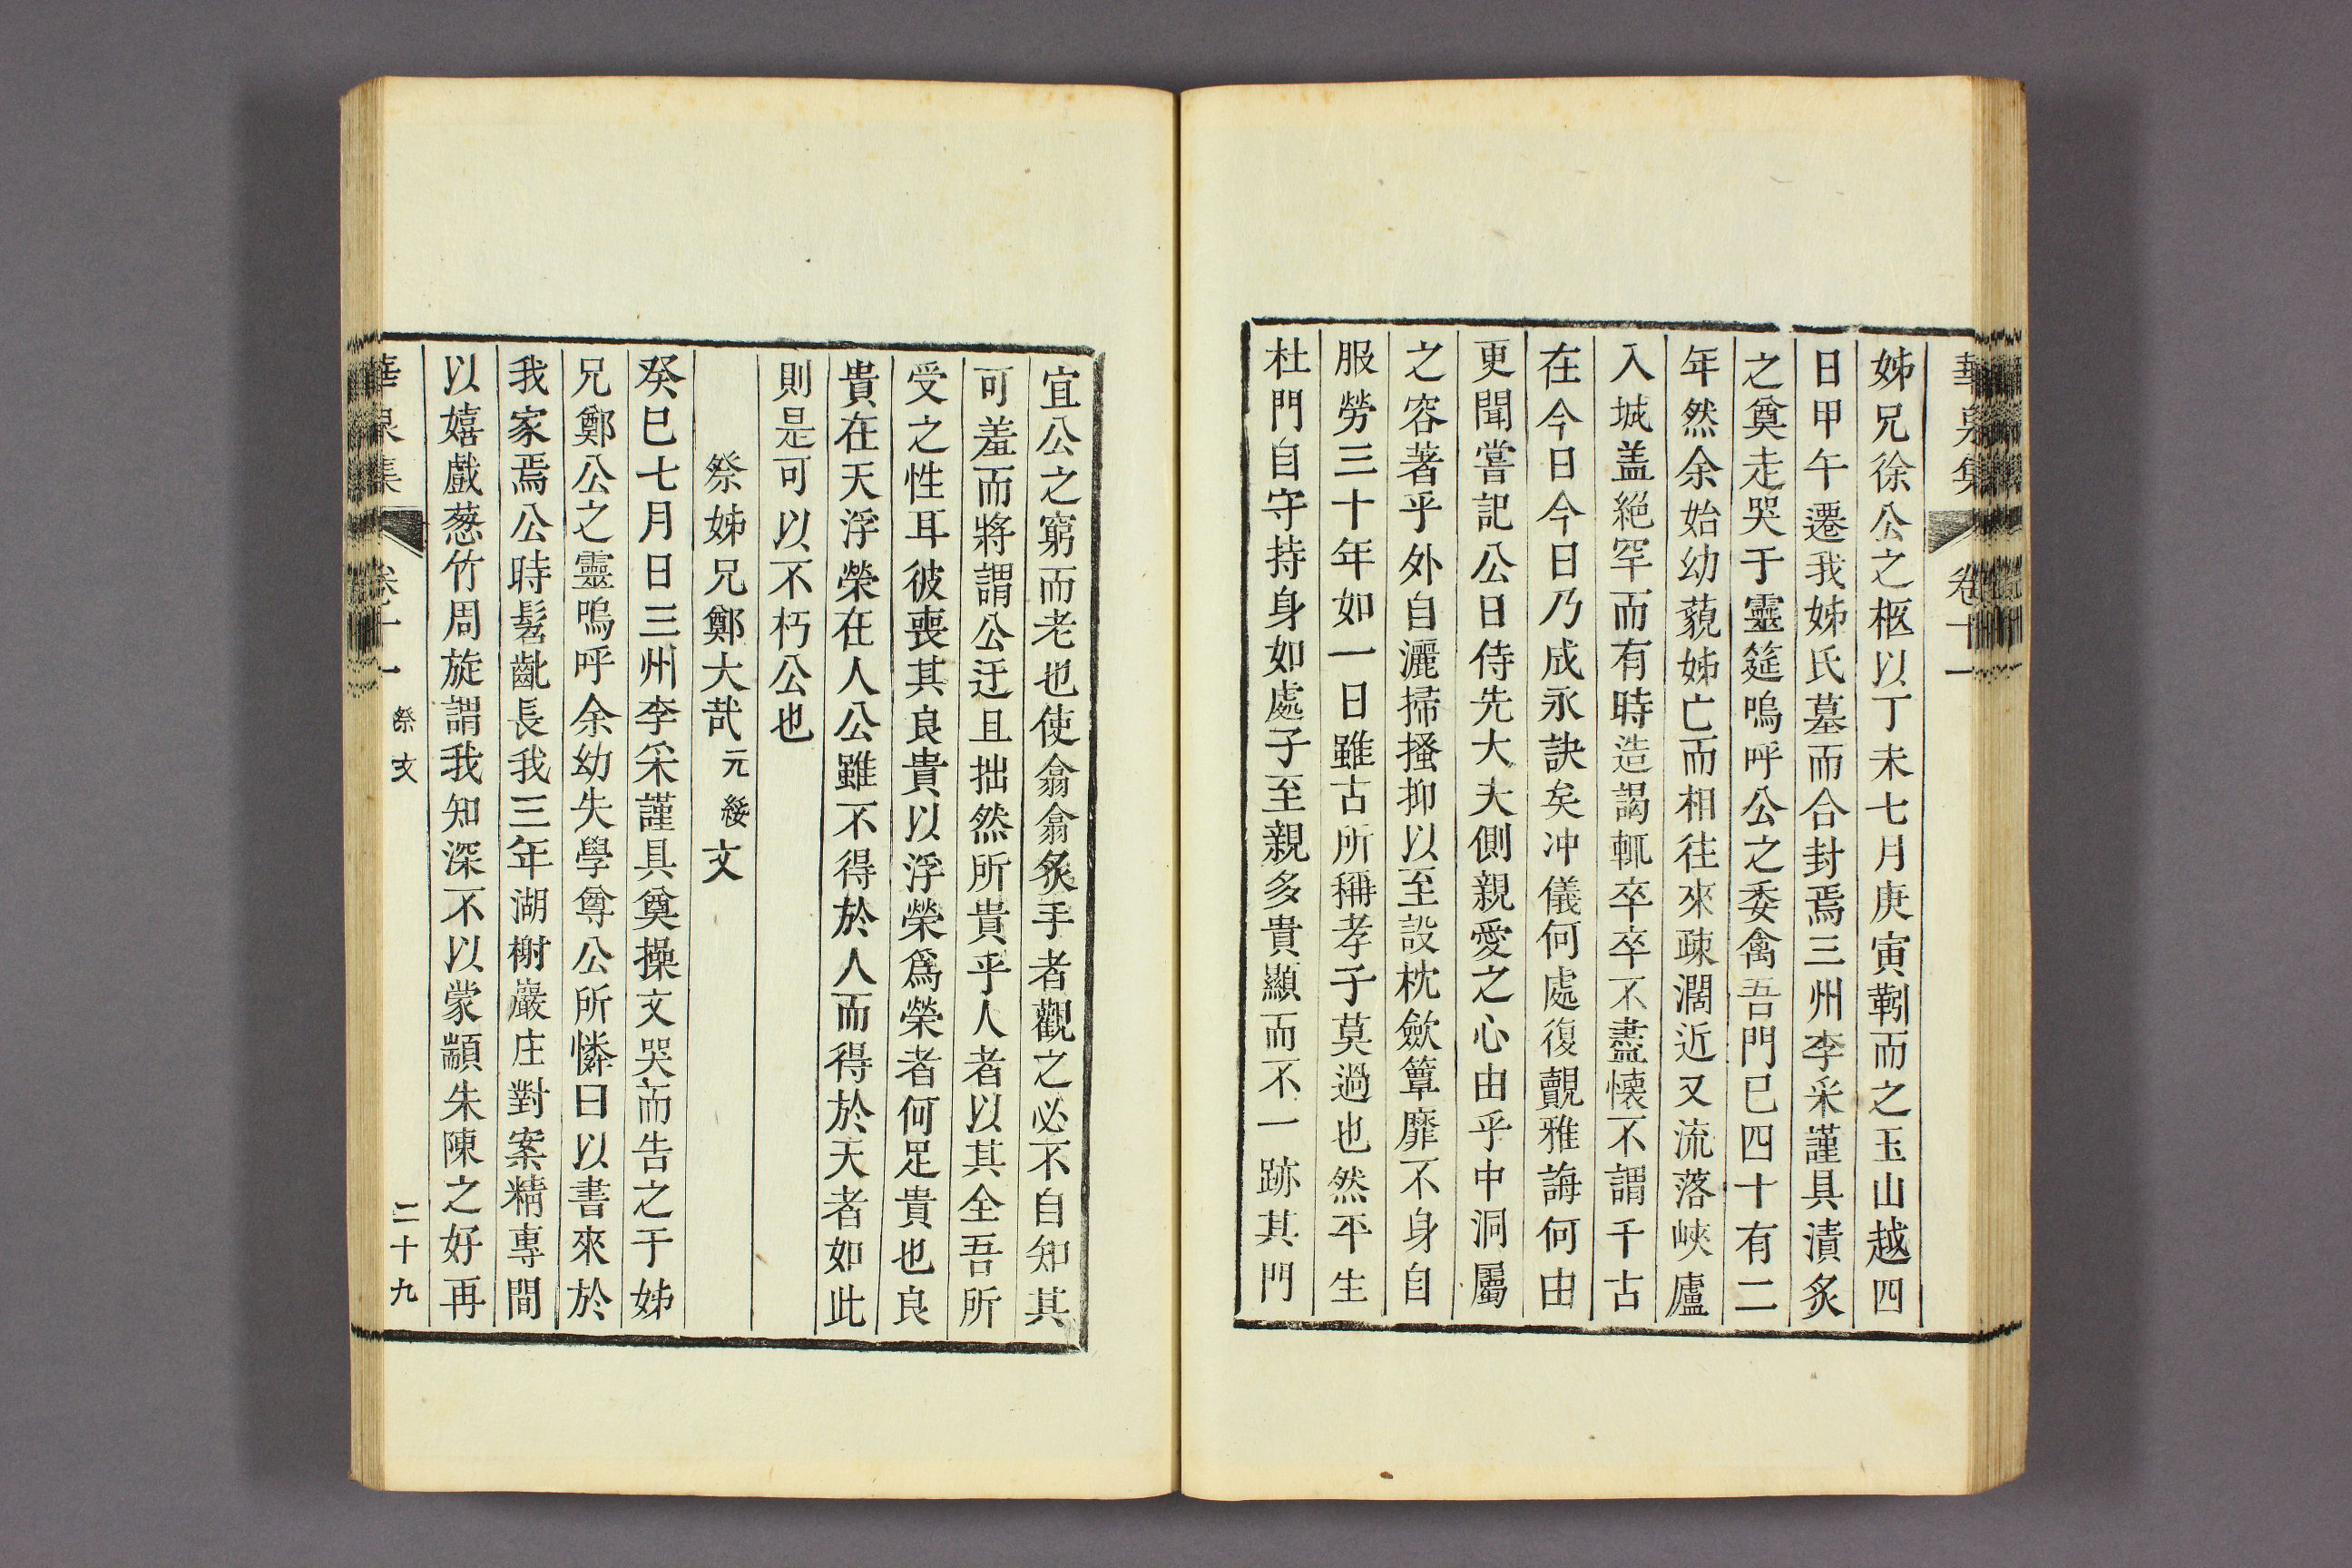 華泉集　卷十一
姊兄徐公之柩以丁未七月庚寅靷而之玉山越四
日甲午遷我姊氏墓而合封焉三州李采謹具漬炙
之奠走哭于靈筵嗚呼公之委禽吾門已四十有二
年然余始幼藐姊亡而相往來疎濶近又流落峽廬
入城盖絕罕而有時造謁輒卒卒不盡懐不謂千古
在今日今日乃成永訣矣冲儀何處復覿雅誨何由
更聞嘗記公日侍先大夫側親愛之心由乎中洞屬
之容著乎外自灑掃搔抑以至設枕歛簟靡不身自
服勞三十年如一日雖古所稱孝子莫過也然平生
杜門自守持身如處子至親多貴顯而不一跡其門
宜公之窮而老也使翕翕炙手者觀之必不自知其
可羞而將謂公迂且拙然所貴乎人者以其全吾所
受之性耳彼喪其良貴以浮榮爲榮者何足貴也良
貴在天浮榮在人公雖不得於人而得於天者如此
則是可以不朽公也
祭姊兄鄭大哉元綏文
癸巳七月日三州李采謹具奠操文哭而告之于姊
兄鄭公之靈嗚呼余幼失學尊公所憐曰以書來於
我家焉公時髫齔長我三年湖榭巖庄對案精專間
以嬉戲葱竹周旋謂我知深不以蒙顓朱陳之好再
華泉集　卷十一　祭文　二十九